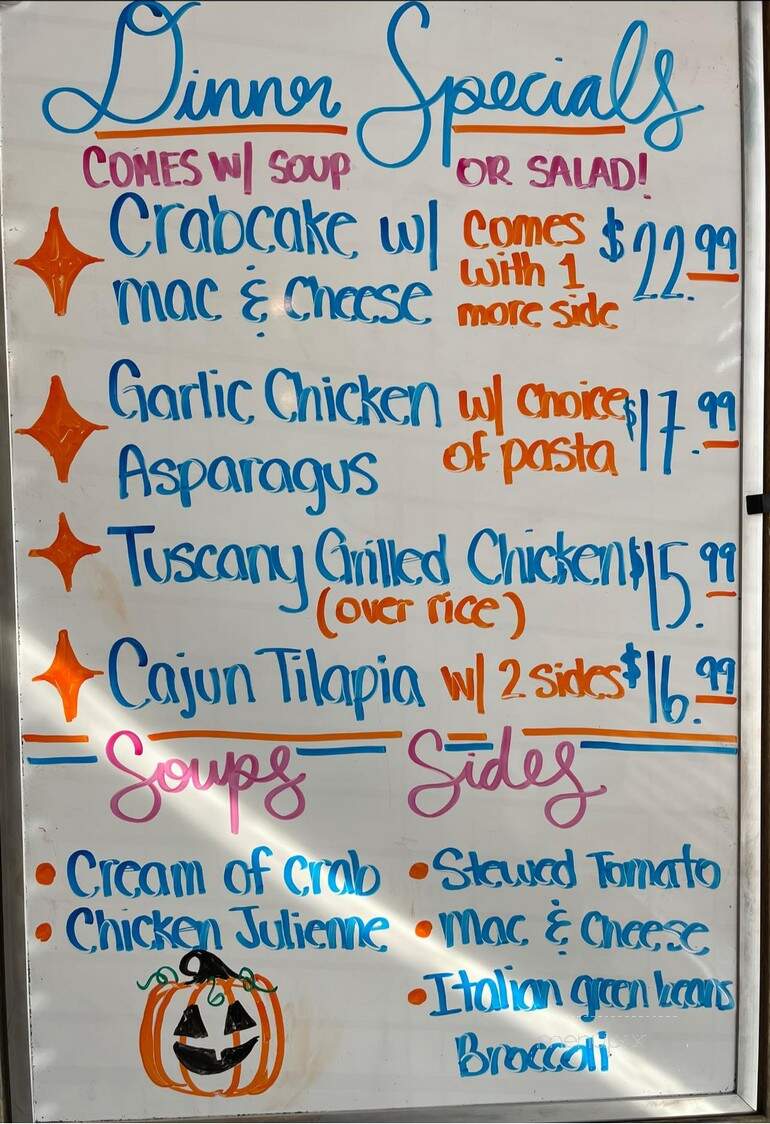 Dinner Specials
COMES W/ SOUP OR SALAD!
Crabcake w/ Comes $22.99
mac & Cheese with 1
more side
Garlic Chicken w/ Choice $17.99
Asparagus of pasta
Tuscany Grilled Chicken $15.99
(over rice)
Cajun Tilapia w/ 2 sides $16.99
Soups Sides
• Cream of Crab • Stewed Tomato
• Chicken Julienne • Mac & Cheese
• Italian green beans
Broccoli